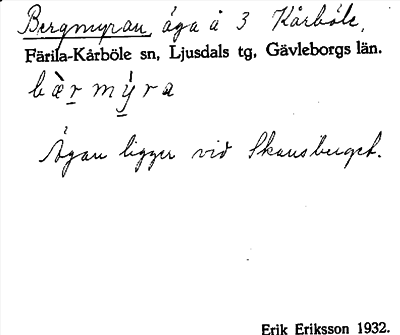 Bergmyran, äga å 3 Kårböle,
Färila-Kårböle sn, Ljusdals tg, Gävleborgs län.
bæ̀r̲mý̲ra
Ägan ligger vid Skansberget.
Erik Eriksson 1932.